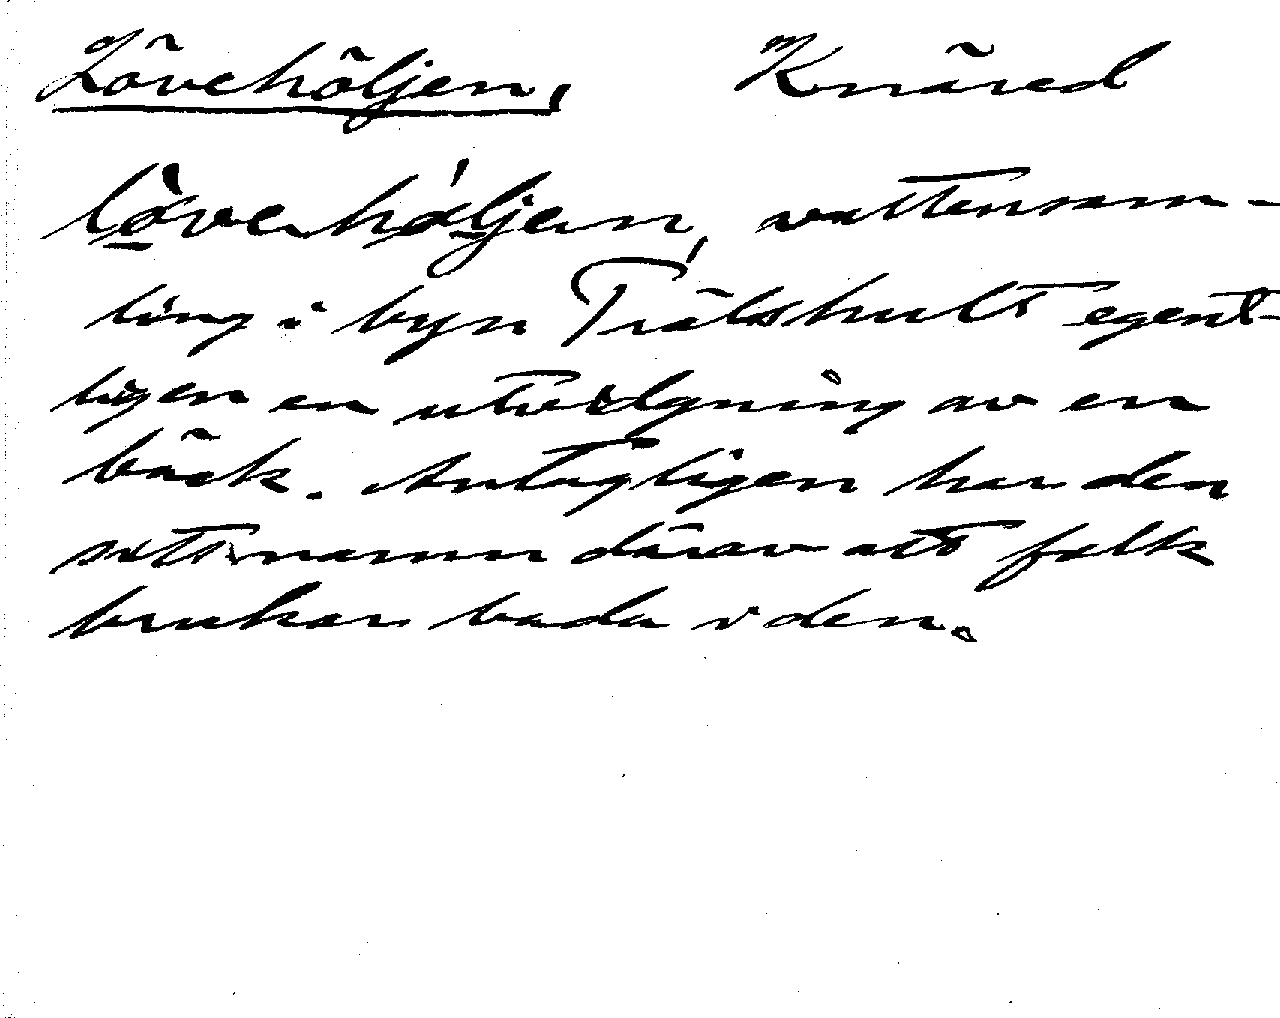 Lövehöljen, Knäred
löv̀ehö́ljen, vattensam-
ling i byn Trälshult egent-
ligen en utvidgning av en
bäck. Antagligen har den
sitt namn därav att folk
brukar bada i den.